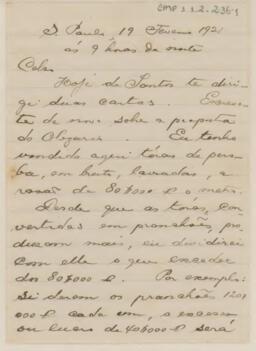 CMP 3.3.2.236-1
S. Paulo, 19 Fevereiro 1921
ás 9 horas da noite
Celso
Hoje de Santos te diri-
gi duas cartas.
te de novo sobre a proposta
do Olegario. Eu tenho
vendido aqui tóras de pero-
ba, em bruto, lavradas, a
rasão de 80$000 o metro.
Desde que as toras, con-
vertidas em pranchões, pro-
duzam mais, eu dividirei
com elle o que exceder
dos 80$000. Por exemplo:
si derem os pranchões 120$
000 cada um, o excesso
ou lucro de 40$000 será